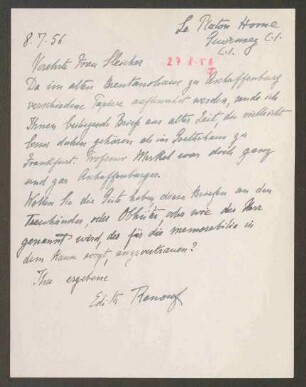 Le Platon Home
Guernsey C.I.
C.I.
8.7.56
27.8.56
Verehrte Frau Sleicher
Da im alten Brentanohaus zu Aschaffenburg
verschiedene Papiere aufbewahrt werden, sende ich
Ihnen beiliegende Briefe aus alter Zeit, die vielleicht
besser dorthin gehören als im Goethehaus zu
Frankfurt. Professor Merkel war doch ganz
und gar Aschaffenburger.
Wollen Sie die Güte haben diese Briefe an den
Treuhänder, oder Obhüter, oder wie der Herr
genannt wird, der für die memorabilia in
dem Haus sorgt, anzuvertrauen?
Ihre ergebene
Edith Renouf